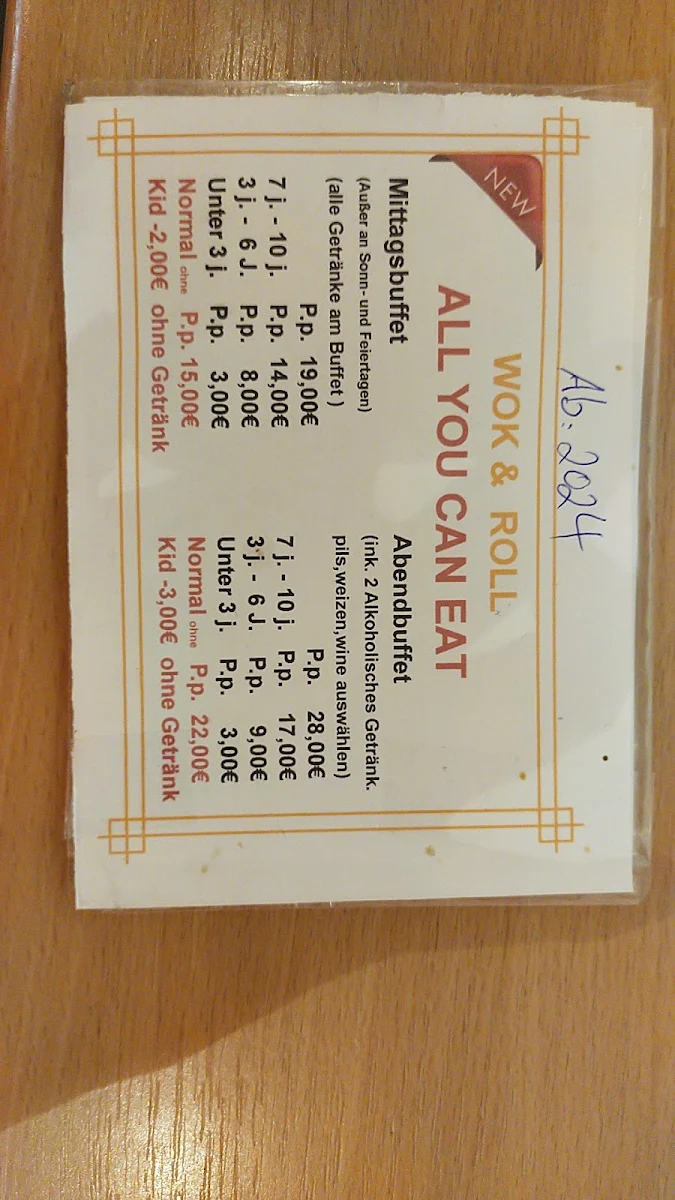 Ab: 2024
NEW
WOK & ROLL
ALL YOU CAN EAT
Mittagsbuffet
(Außer an Sonn- und Feiertagen)
(alle Getränke am Buffet )
P.p. 19,00€
7 j. - 10 j. P.p. 14,00€
3 j. - 6 J. P.p. 8,00€
Unter 3 j. P.p. 3,00€
Normal ohne P.p. 15,00€
Kid -2,00€ ohne Getränk
Abendbuffet
(ink. 2 Alkoholisches Getränk.
pils,weizen,wine auswählen)
P.p. 28,00€
7 j. - 10 j. P.p. 17,00€
3 j. - 6 J. P.p. 9,00€
Unter 3 j. P.p. 3,00€
Normal ohne P.p. 22,00€
Kid -3,00€ ohne Getränk